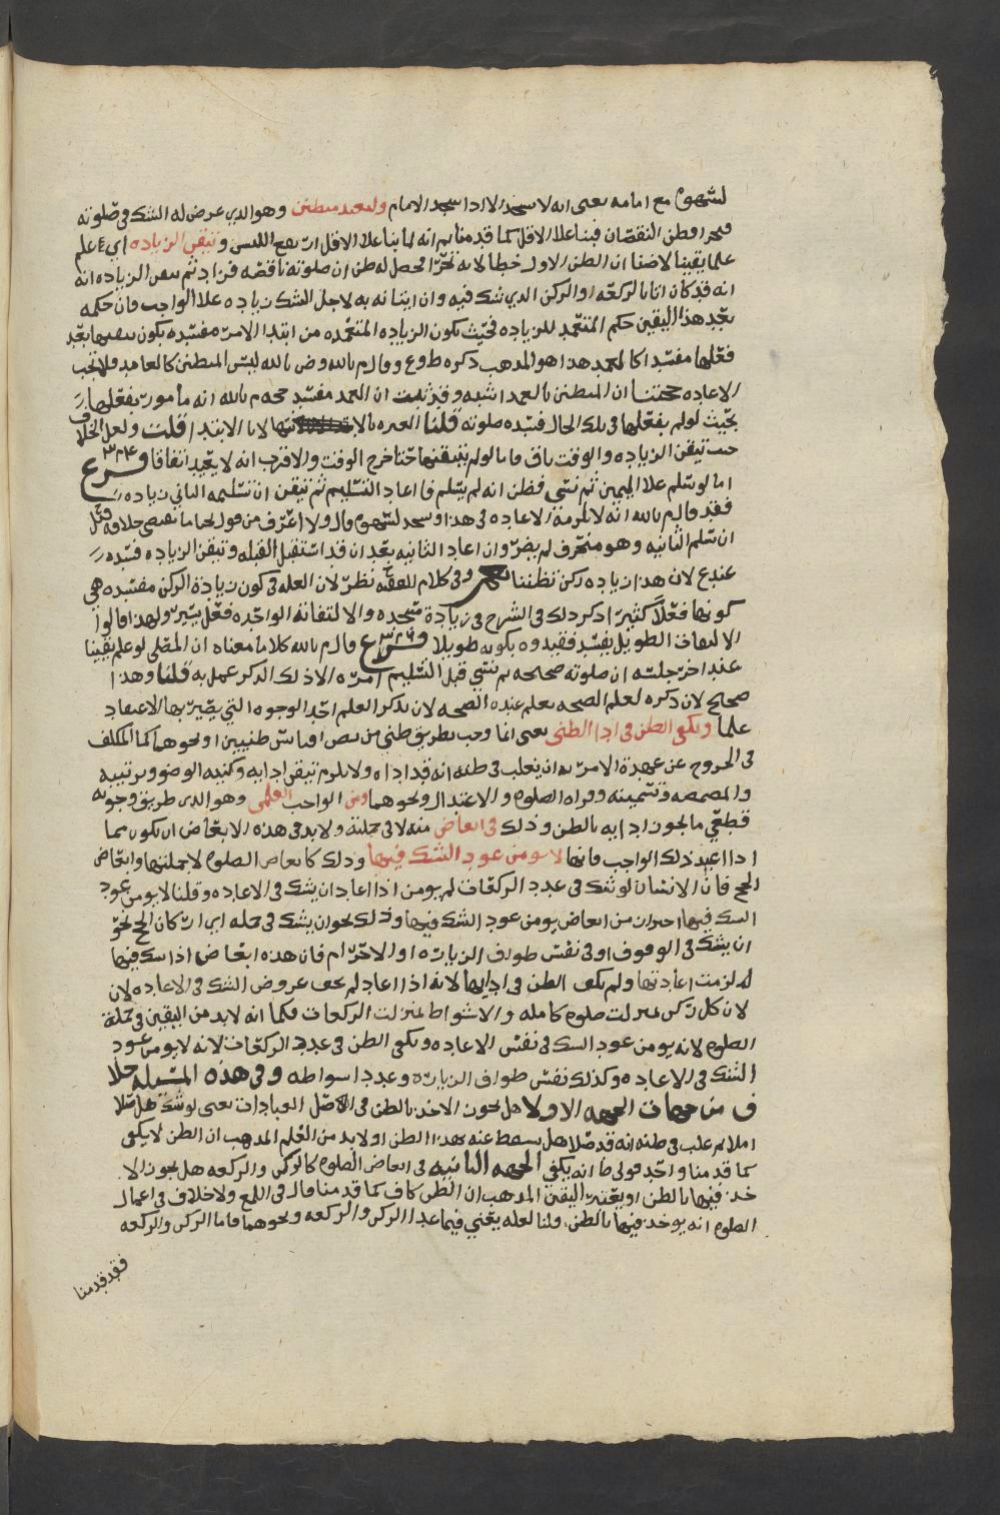 لسهوه مع امامه يعني انه لا يسجد الا اذا سجد الامام وليعد متظنن وهو الذي عرض له الشك في صلوته
فتحرا وظن النقصان فبنا علا الاقل كما قدمنا ثم انه لما بنا علا الاقل ارتفع اللبس وتيقن الزياده اي علم
علما يقينا لا ضنا ان الظن الاول خطا لانه تحرا فحصل له ظن ان صلوته ناقصه فزاد ثم تيقن الزياده انه
انه قد كان اتا بالركعه او الركن الذي شك فيه وان اتيانه به لاجل الشك زياده علا الواجب فان حكمه
بعد هذا اليقين حكم المتعمد للزياده فحيث تكون الزياده المتعمده من ابتدا الامر مفسده يكون تيقنها بعد
فعلها مفسدا كالعمد هذا هو المذهب ذكره ط وع و وقال م بالله وض بالله ليس المتظنن كالعامد فلا تجب
الاعاده حجتنا ان المتظنن بالعمد اشبه وقد ثبت ان العمد مفسد حجه م بالله انه مامور بفعلها
بحيث لو لم يفعلها في تلك الحال فسده صلوته قلنا العبره بالانتها لا بالابتدا قلت ولعل الخلاف
حيث تيقن الزياده والوقت باق فاما لو لم يتيقنها حتا خرج الوقت والاقرب انه لا يعيد اتفاقا فرع
اما لو سلم علا اليمين ثم نسي فظن انه لم يسلم فاعاد التسليم ثم تيقن ان تسليمه الثاني زياده
فقد قال م بالله انه لا تلزمه الاعاده في هذا وسجد لسهوه قال ولا اعرف من قول يحيا ما يقتضي خلافه وقيل
ان سلم الثانيه وهو منحرف لم يضر وان اعاد الثانيه بعد ان قد استقبل القبله وتيقن الزياده فسده
عندع لان هذا زياده ركن تظننا وفي كلام للفقيه ع نظر لان العله في كون زيادة الركن مفسده هي
كونها فعلا كثيرا ذكر ذلك في الشرح في زيادة سجده والالتفاته الواحده فعل يسير ولهذا قالوا
الالتفات الطويل يفسد فقيدوه بكونه طويلا فرع قال م بالله كلاما معناه ان المصلي لو علم يقينا
عند اخر جلسه ان صلوته صحيحه ثم نسي قبل التسليم امره الا ذلك الذكر عمل به قلنا وهذا
صحيح لان ذكره لعلم الصحه يعلم عنده الصحه لان تذكر العلم احد الوجوه التي يصير بها الاعتقاد
علما ويكفي الظن في اداء الظني يعني انما وجب بطريق ظني من نص او قياس ظنيين او نحوهما كما المكلف
في الخروج عن عهدة الامر به ان يغلب في ظنه انه قد اداه ولا يلزم تيقن ادايه وكنيه الوضو وترتيبه
والمضمضه وتسميته وقراه الصلوه والاعتدال ونحوهما ومن الواجب العلمي وهو الذي طريق وجوبه
قطعي ما يجوز ادايه بالظن وذلك في ابعاض منه لا في جملته ولا بد في هذه الابعاض ان تكون مما
اذا اعيد ذلك الواجب فانها لا يومن عود الشك فيها وذلك كابعاض الصلوه لا جملتها وابعاض
الحج فان الانسان لو شك في عدد الركعات لم يومن اذا اعاد ان يشك في الاعاده وقلنا لا يومن عود
الشك فيها احترازا من ابعاض يومن عود الشك فيها وذلك نحو ان يشك في جمله اي اركان الحج نحو
ان يشك في الوقوف او في نفس طواف الزياره او الاحرام فان هذه ابعاض اذا شك فيها
لم لزمت اعادتها ولم يكف الظن في ادايها لانه اذا اعاد لم يخف عروض الشك في الاعاده لان
لان كل ركن بمنزلت صلوه كامله والاشواط بمنزلت الركعات فكما انه لا بد من اليقين في جملة
الصلوه لانه يومن عود الشك في نفس الاعاده ويكفي الظن في عدد الركعات لانه لا يومن عود
الشك في الاعاده وكذلك نفس طواف الزياره وعدد اشواطه وفي هذه المسئله خلا
ف من جهات الجهه الاولا هل يجوز الاخذ بالظن في الاصل العبادات يعني لو شك هل صلا
ام لا ثم غلب في ظنه انه قد صلا هل يسقط عنه بهذا الظن او لا بد من العلم المذهب ان الظن لا يكفي
كما قدمنا واحد قولي ط انه يكفي الجهه الثانيه في ابعاض الصلوه كالركن والركعه هل يجوز الا
خذ فيها بالظن او يعتبر اليقين المذهب ان الظن كاف كما قدمنا قال في اللمع ولا خلاف في اعمال
الصلوه انه يوخذ فيها بالظن، ولنا لعله يعني فيما عدا الركن والركعه ونحوهما فاما الركن والركعه
فقد قدمنا